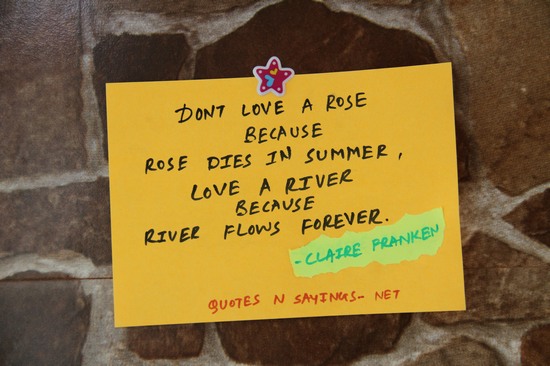 DONT LOVE A ROSE
BECAUSE
ROSE DIES IN SUMMER,
LOVE A RIVER
BECAUSE
RIVER FLOWS FOREVER.
- CLAIRE FRANKEN
QUOTES N SAYINGS- NET